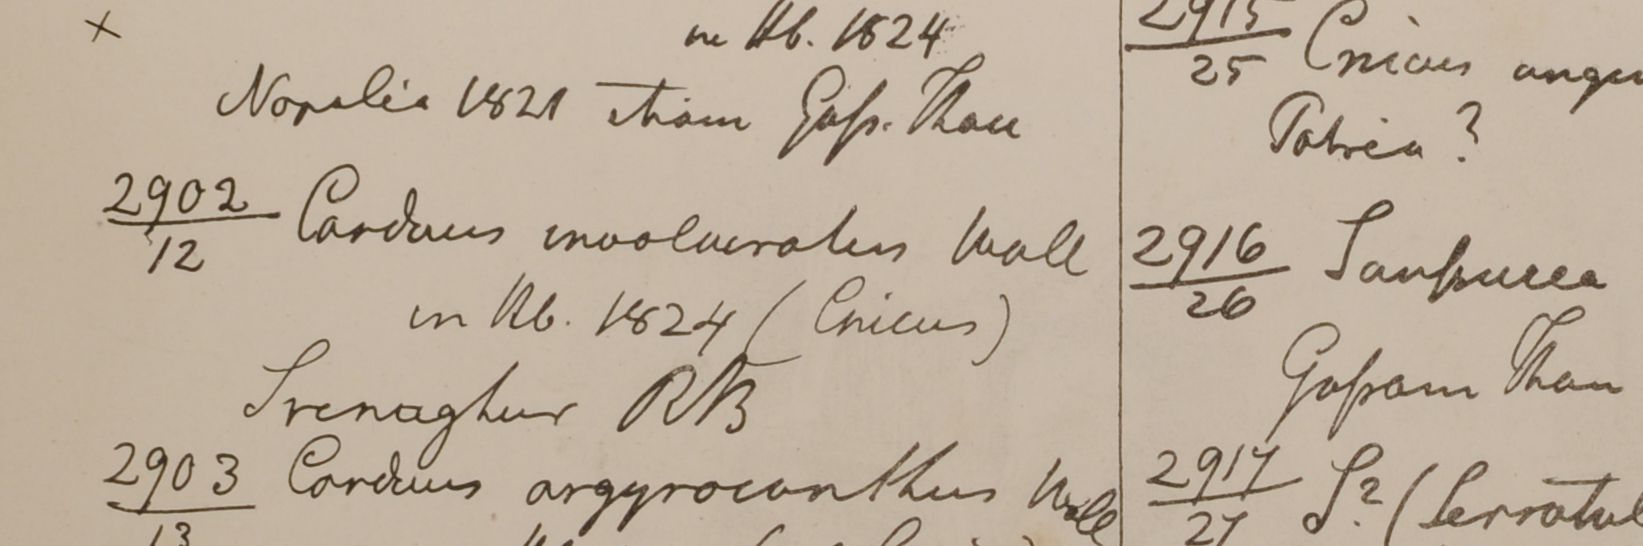 ×
in Hb. 1824
Napalia 1821 etiam Goss. Than
2902
12
Carduus involucratus Wall
in Hb. 1824 (Cnicus)
Srenaghur RB
2903
13
Carduus argyrocanthus Wall
2915
25
Cnicus
Patria?
2916
26
Saussurea
Gossam Than
2917
27
S? (Serratul